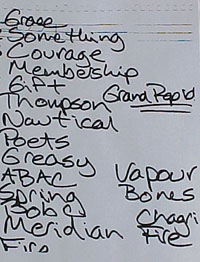 Grace
Something
Courage
Membership
Gift
Thompson
Grand Rapid
Nautical
Poets
Greasy
ABAC
Vapour
Spring
Bones
Bob
Meridian
Chagri
Fire
Fire